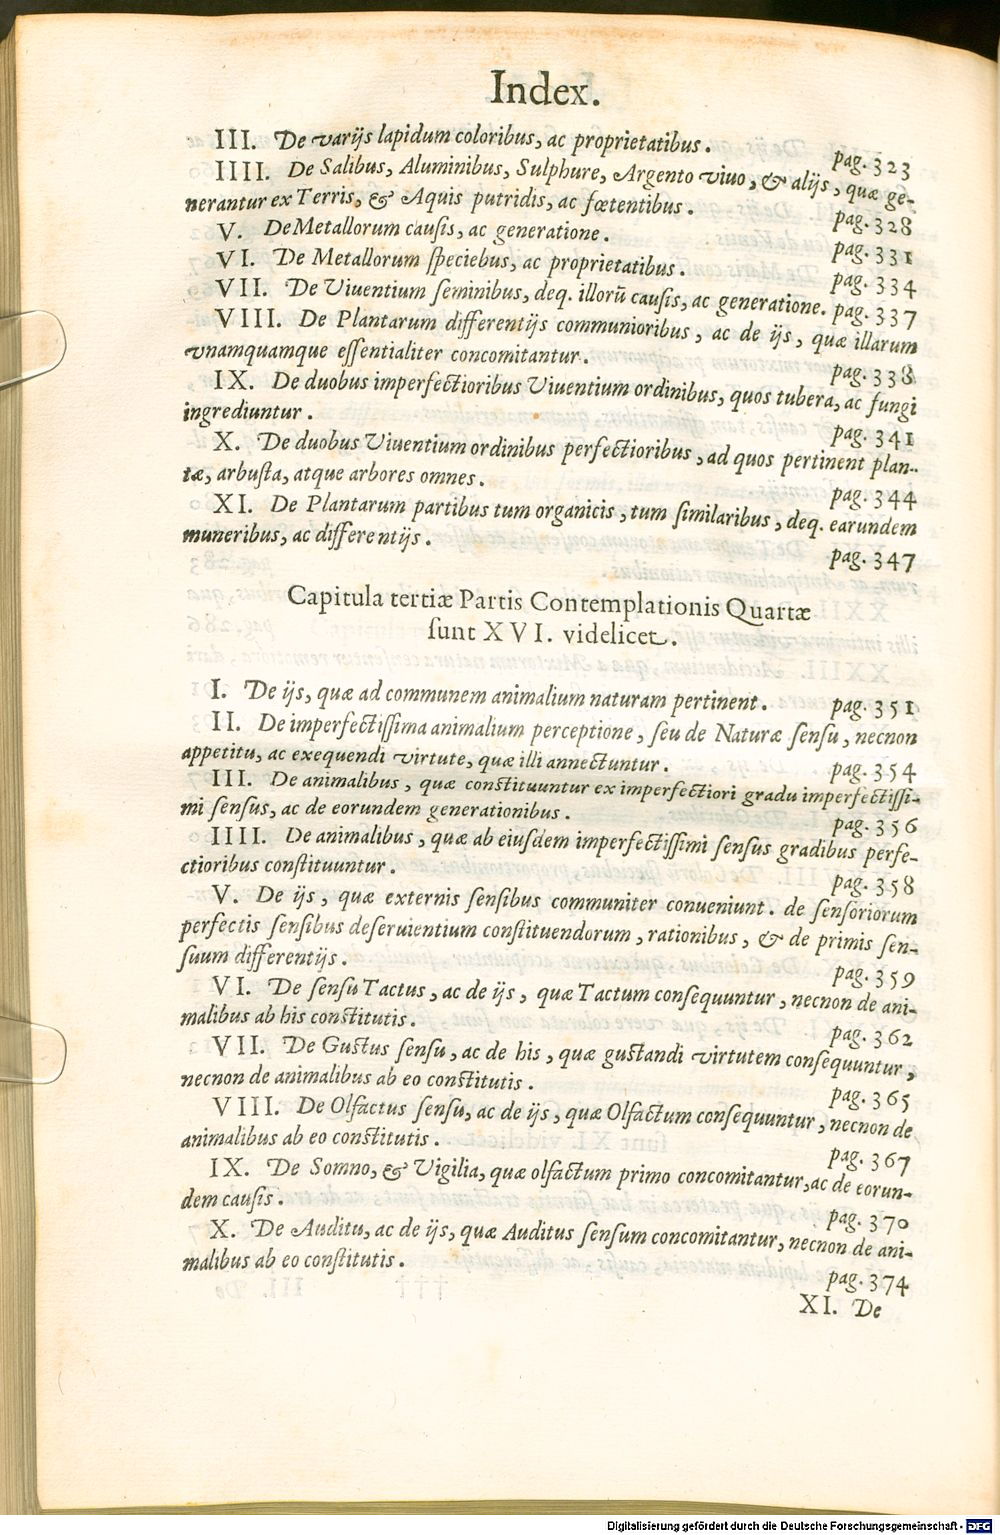 Index.
III. De varijs lapidum coloribus, ac proprietatibus. pag. 323
IIII. De Salibus, Aluminibus, Sulphure, Argento viuo, & alijs, quæ ge-
nerantur ex Terris, & Aquis putridis, ac fœtentibus. pag. 328
V. De Metallorum causis, ac generatione. pag. 331
VI. De Metallorum speciebus, ac proprietatibus. pag. 334
VII. De Viuentium seminibus, deq. illorũ causis, ac generatione. pag. 337
VIII. De Plantarum differentijs communioribus, ac de ijs, quæ illarum
vnamquamque essentialiter concomitantur. pag. 338
IX. De duobus imperfectioribus Viuentium ordinibus, quos tubera, ac fungi
ingrediuntur. pag. 341
X. De duobus Viuentium ordinibus perfectioribus, ad quos pertinent plan-
tæ, arbusta, atque arbores omnes. pag. 344
XI. De Plantarum partibus tum organicis, tum similaribus, deq. earundem
muneribus, ac differentijs. pag. 347
Capitula tertiæ Partis Contemplationis Quartæ
sunt XVI. videlicet.
I. De ijs, quæ ad communem animalium naturam pertinent. pag. 351
II. De imperfectissima animalium perceptione, seu de Naturæ sensu, necnon
appetitu, ac exequendi virtute, quæ illi annectuntur. pag. 354
III. De animalibus, quæ constituuntur ex imperfectiori gradu imperfectissi-
mi sensus, ac de eorundem generationibus. pag. 356
IIII. De animalibus, quæ ab eiusdem imperfectissimi sensus gradibus perfe-
ctioribus constituuntur. pag. 358
V. De ijs, quæ externis sensibus communiter conueniunt. de sensoriorum
perfectis sensibus deseruientium constituendorum, rationibus, & de primis sen-
suum differentijs. pag. 359
VI. De sensu Tactus, ac de ijs, quæ Tactum consequuntur, necnon de ani-
malibus ab his constitutis. pag. 362
VII. De Gustus sensu, ac de his, quæ gustandi virtutem consequuntur,
necnon de animalibus ab eo constitutis. pag. 365
VIII. De Olfactus sensu, ac de ijs, quæ Olfactum consequuntur, necnon de
animalibus ab eo constitutis. pag. 367
IX. De Somno, & Vigilia, quæ olfactum primo concomitantur, ac de eorun-
dem causis. pag. 370
X. De Auditu, ac de ijs, quæ Auditus sensum concomitantur, necnon de ani-
malibus ab eo constitutis. pag. 374
XI. De
Digitalisierung gefördert durch die Deutsche Forschungsgemeinschaft - DFG